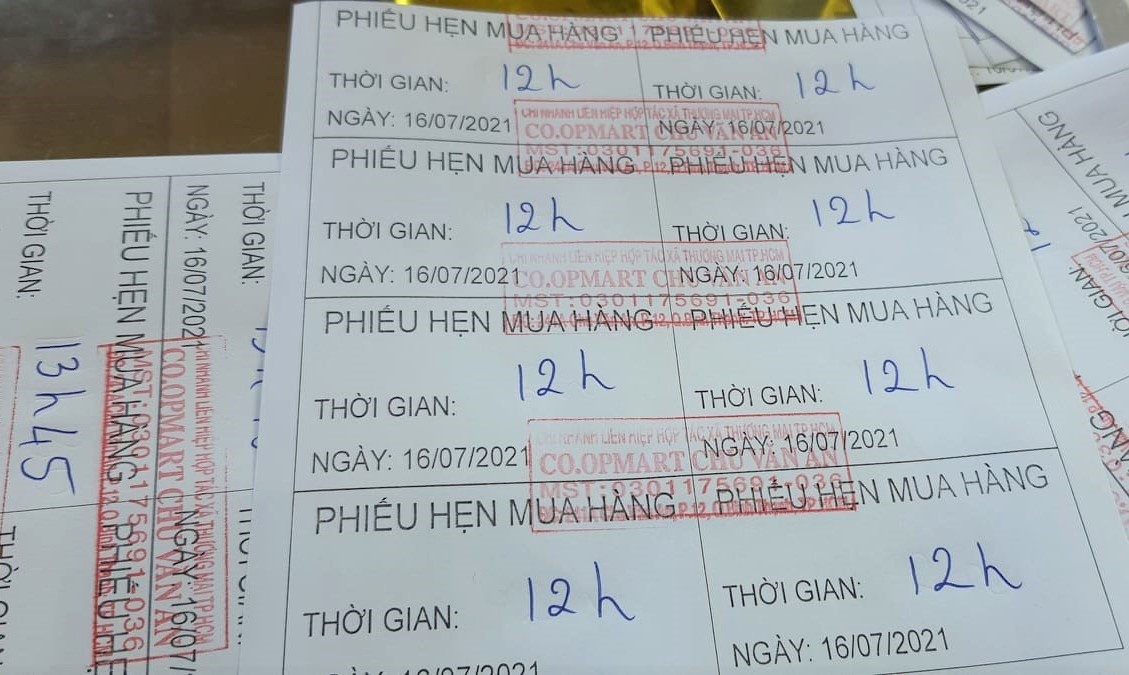 PHIẾU HẸN MUA HÀNG PHIẾU HẸN MUA HÀNG
THỜI GIAN: 12h THỜI GIAN: 12h
NGÀY: 16/07/2021 NGÀY: 16/07/2021
CHI NHÁNH LIÊN HIỆP HỢP TÁC XÃ THƯƠNG MẠI TP.HCM
CO.OPMART CHU VĂN AN
MST:0301175691-036
PHIẾU HẸN MUA HÀNG PHIẾU HẸN MUA HÀNG
THỜI GIAN: 12h THỜI GIAN: 12h
NGÀY: 16/07/2021 NGÀY: 16/07/2021
CHI NHÁNH LIÊN HIỆP HỢP TÁC XÃ THƯƠNG MẠI TP.HCM
CO.OPMART CHU VĂN AN
MST:0301175691-036
PHIẾU HẸN MUA HÀNG PHIẾU HẸN MUA HÀNG
THỜI GIAN: 12h THỜI GIAN: 12h
NGÀY: 16/07/2021 NGÀY: 16/07/2021
CHI NHÁNH LIÊN HIỆP HỢP TÁC XÃ THƯƠNG MẠI TP.HCM
CO.OPMART CHU VĂN AN
MST:0301175691-036
PHIẾU HẸN MUA HÀNG PHIẾU HẸN MUA HÀNG
THỜI GIAN: 12h THỜI GIAN: 12h
16/07/2021 NGÀY: 16/07/2021
THỜI GIAN:
NGÀY: 16/07/2021 NGÀY: 16/07/
CHI NHÁNH LIÊN HIỆP HỢP TÁC XÃ THƯƠNG MẠI TP.HCM
CO.OPMART CHU VĂN AN
MST:0301175691-036
PHIẾU HẸN MUA HÀNG PHIẾU HẸ
THỜI GIAN: 13h45
MUA HÀNG